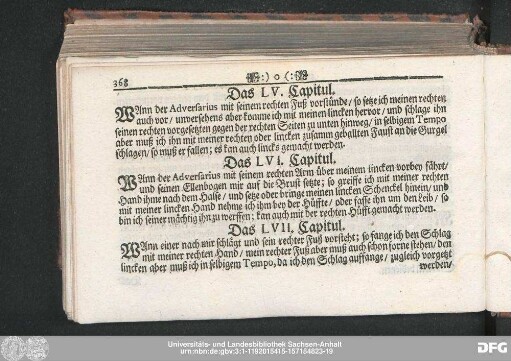 368
:) o (:
Das LV. Capitul.
WAnn der Adversarius mit seinem rechten Fuß vorstünde/ so setze ich meinen rechten
auch vor/ unversehens aber komme ich mit meinen lincken hervor/ und schlage ihn
seinen rechten vorgesetzten gegen der rechten Seiten zu unten hinweg/ in selbigem Tempo
aber muß ich ihn mit meiner rechten oder lincken zusamm geballten Faust an die Gurgel
schlagen/ so muß er fallen; es kan auch lincks gemacht werden.
Das LVI. Capitul.
WAnn der Adversarius mit seinem rechten Arm über meinem lincken vorbey fähret/
und seinen Ellenbogen mir auf die Brust setzte; so greiffe ich mit meiner rechten
Hand ihme nach dem Halse/ und setze oder bringe meinen lincken Schenckel hinein/ und
mit meiner lincken Hand nehme ich ihm bey der Hüffte/ oder fasse ihn um den Leib/ so
bin ich seiner mächtig ihn zu werffen; kan auch mit der rechten Hüfft gemacht werden.
Das LVII. Capitul.
WAnn einer nach mir schlägt und sein rechter Fuß vorsteht; so fange ich den Schlag
mit meiner rechten Hand/ mein rechter Fuß aber muß auch schon forne stehen/ den
lincken aber muß ich in selbigem Tempo, da ich den Schlag auffange/ zugleich vorgesetzt
werden/
Universitäts- und Landesbibliothek Sachsen-Anhalt
urn:nbn:de:gbv:3:1-1192015415-157154823-19
DFG